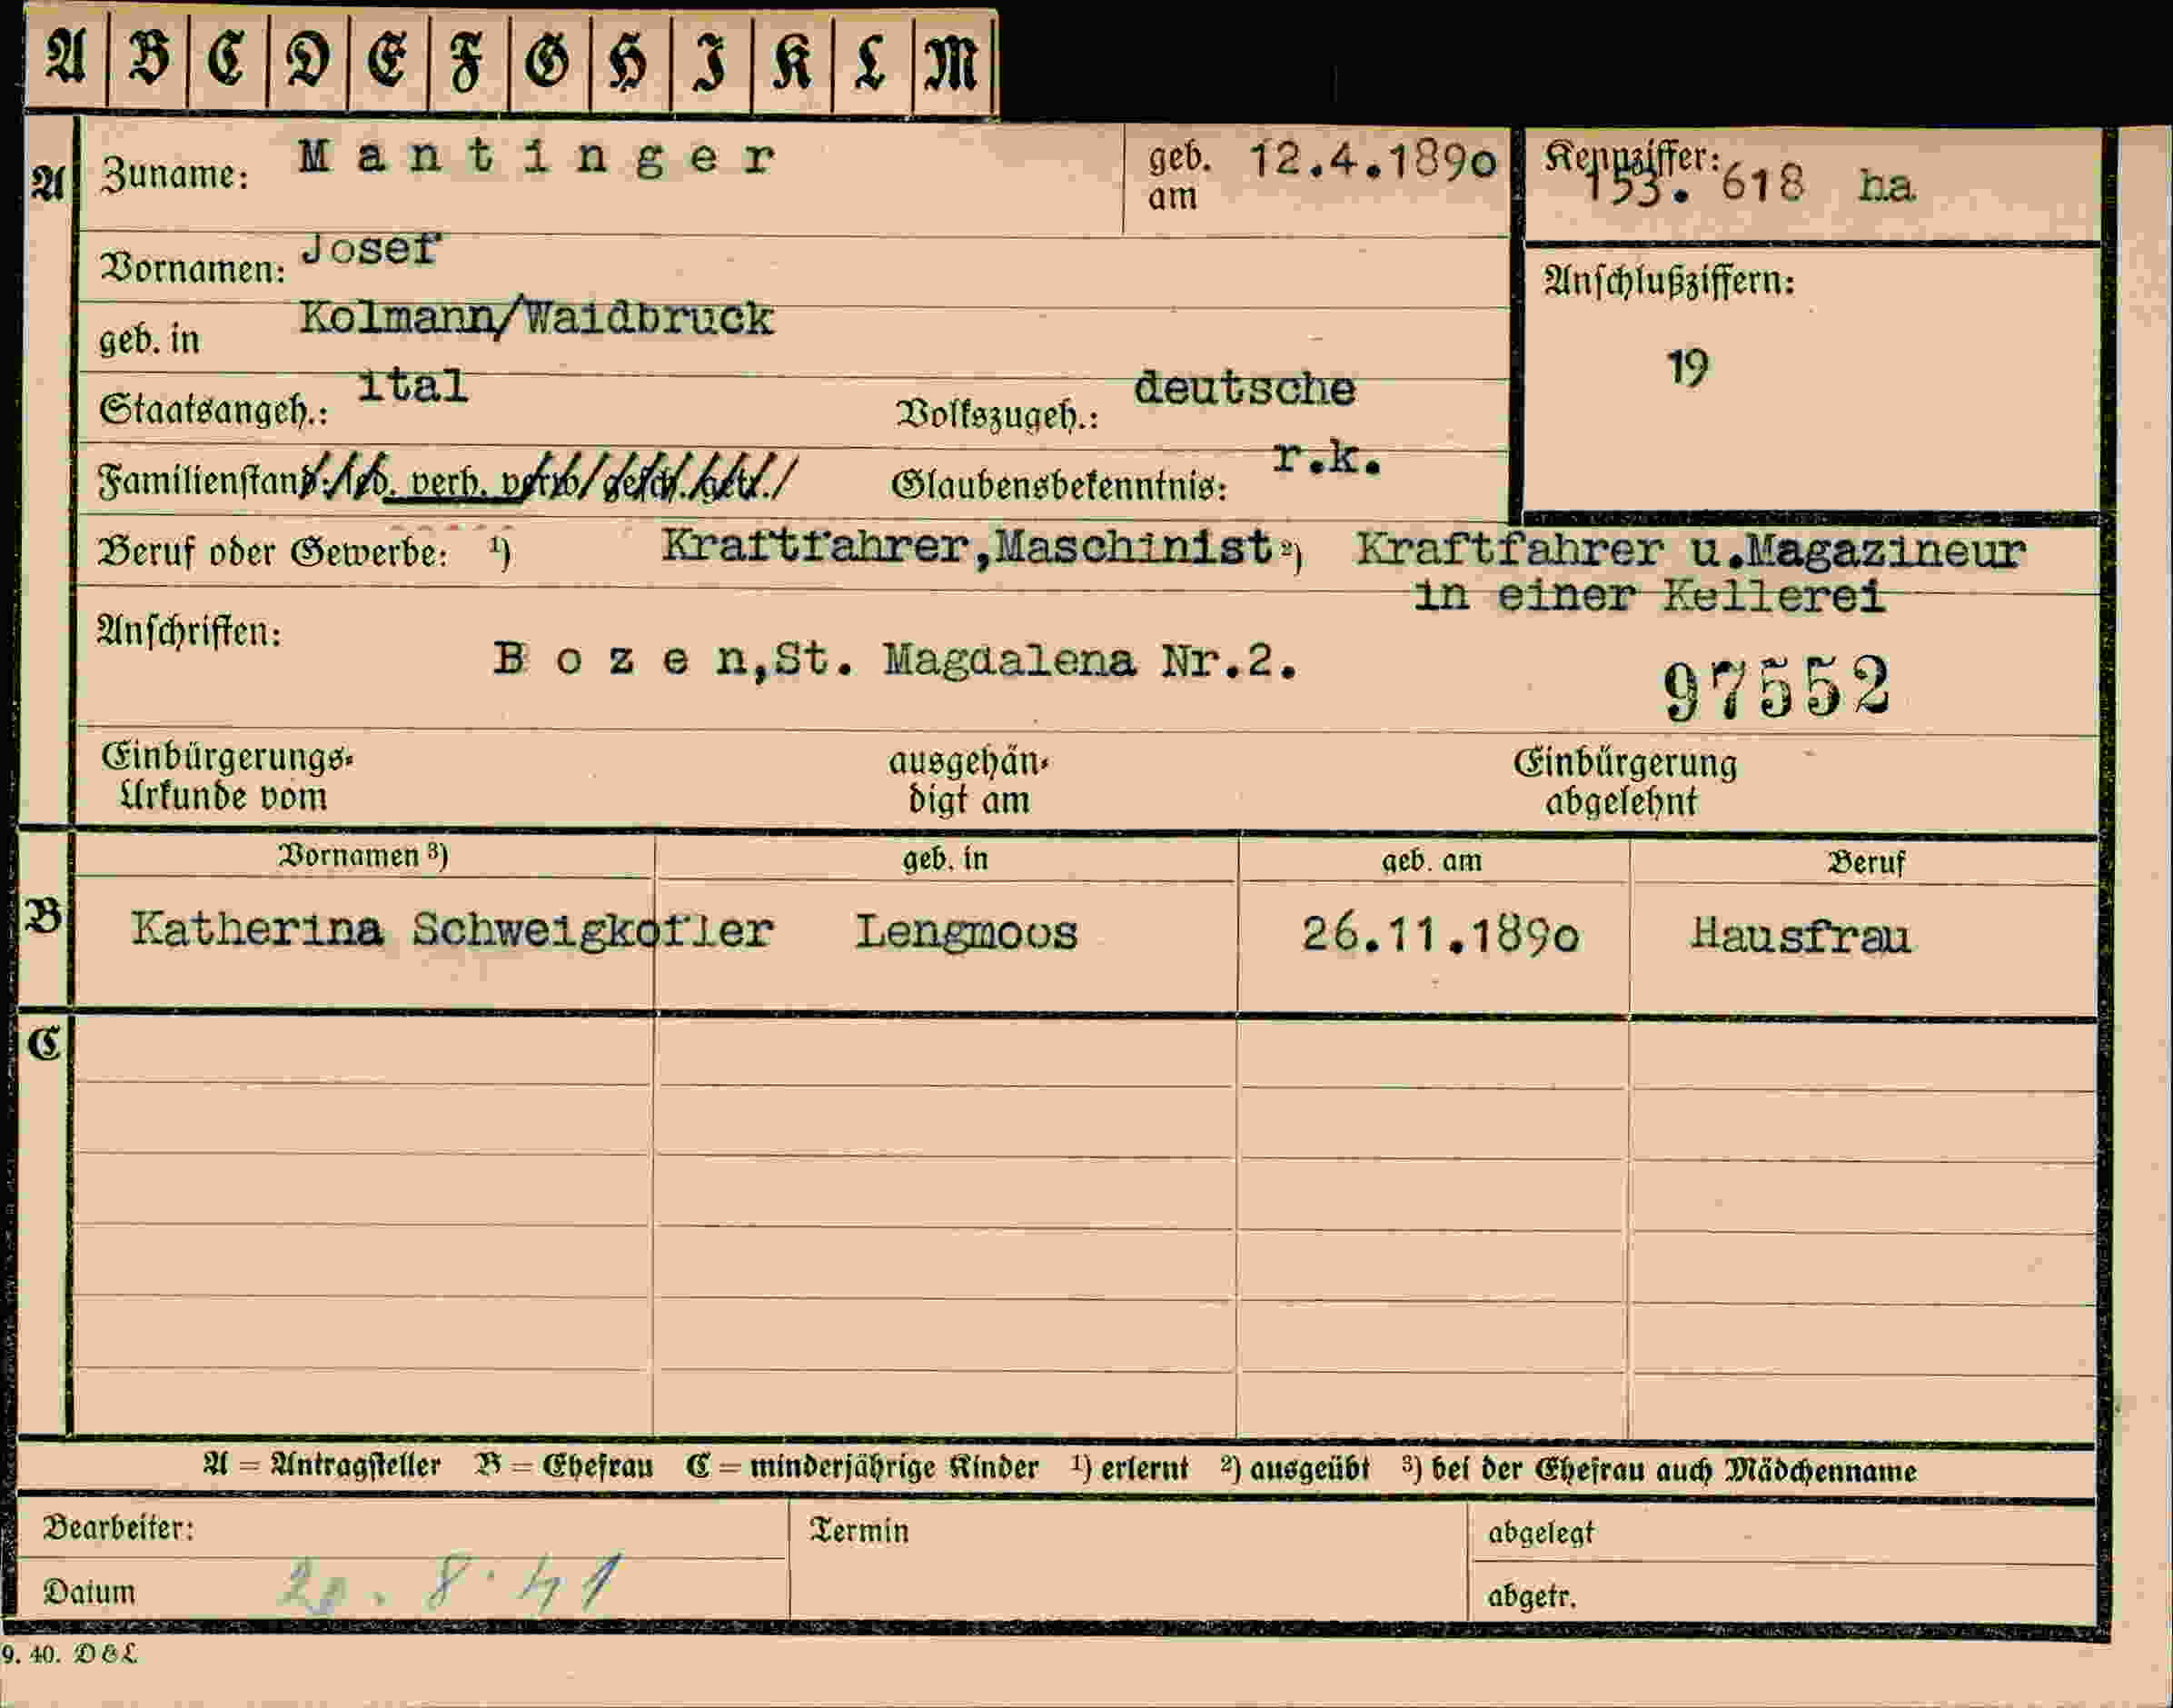 A B C D E F G H I K L M
A Zuname: Mantinger geb. am 12.4.1890 Kennziffer: 153. 618 ha
Vornamen: Josef
Anschlußziffern:
geb. in Kolmann/Waidbruck
19
Staatsangeh.: ital Volkszugeh.: deutsche
Familienstand: led. verh. verw. gesch. getr. Glaubensbekenntnis: r.k.
Beruf oder Gewerbe: ¹) Kraftfahrer,Maschinist ²) Kraftfahrer u.Magazineur
in einer Kellerei
Anschriften:
Bozen,St. Magdalena Nr.2.
97552
Einbürgerungs- ausgehän- Einbürgerung
Urkunde vom digt am abgelehnt
Vornamen ³) geb. in geb. am Beruf
B Katherina Schweigkofler Lengmoos 26.11.1890 Hausfrau
C
A = Antragsteller B = Ehefrau C = minderjährige Kinder ¹) erlernt ²) ausgeübt ³) bei der Ehefrau auch Mädchenname
Bearbeiter: Termin abgelegt
Datum 20.8.41 abgetr.
9. 40. D&L